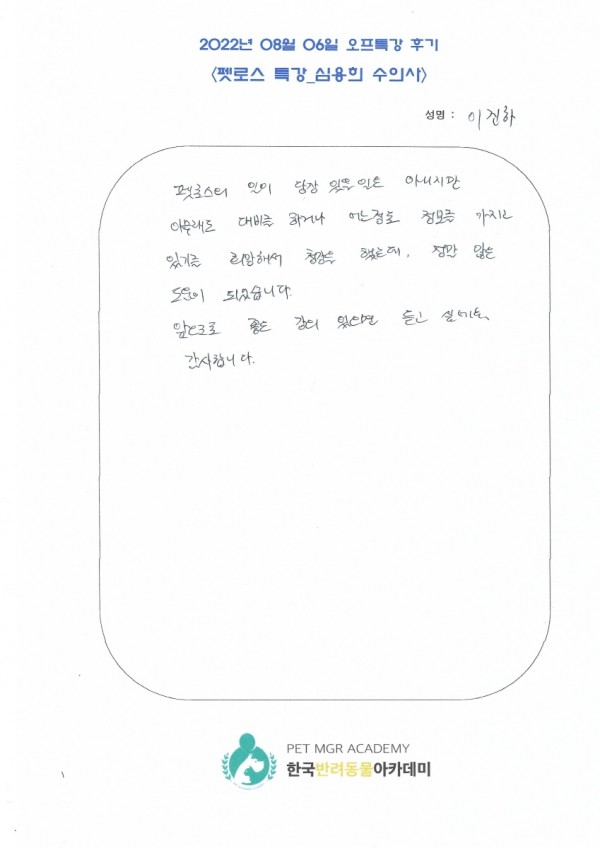 2022년 08월 06일 오프특강 후기
<펫로스 특강_심용희 수의사>
성명 : 이진하
펫로스의 일이 당장 있을 일은 아니지만
아무래도 대비를 하거나 어느정도 정보를 가지고
있기를 희망해서 청강을 했는데, 정말 많은
도움이 되었습니다.
앞으로도 좋은 강의 있다면 듣고 싶네요.
감사합니다.
PET MGR ACADEMY
한국반려동물아카데미